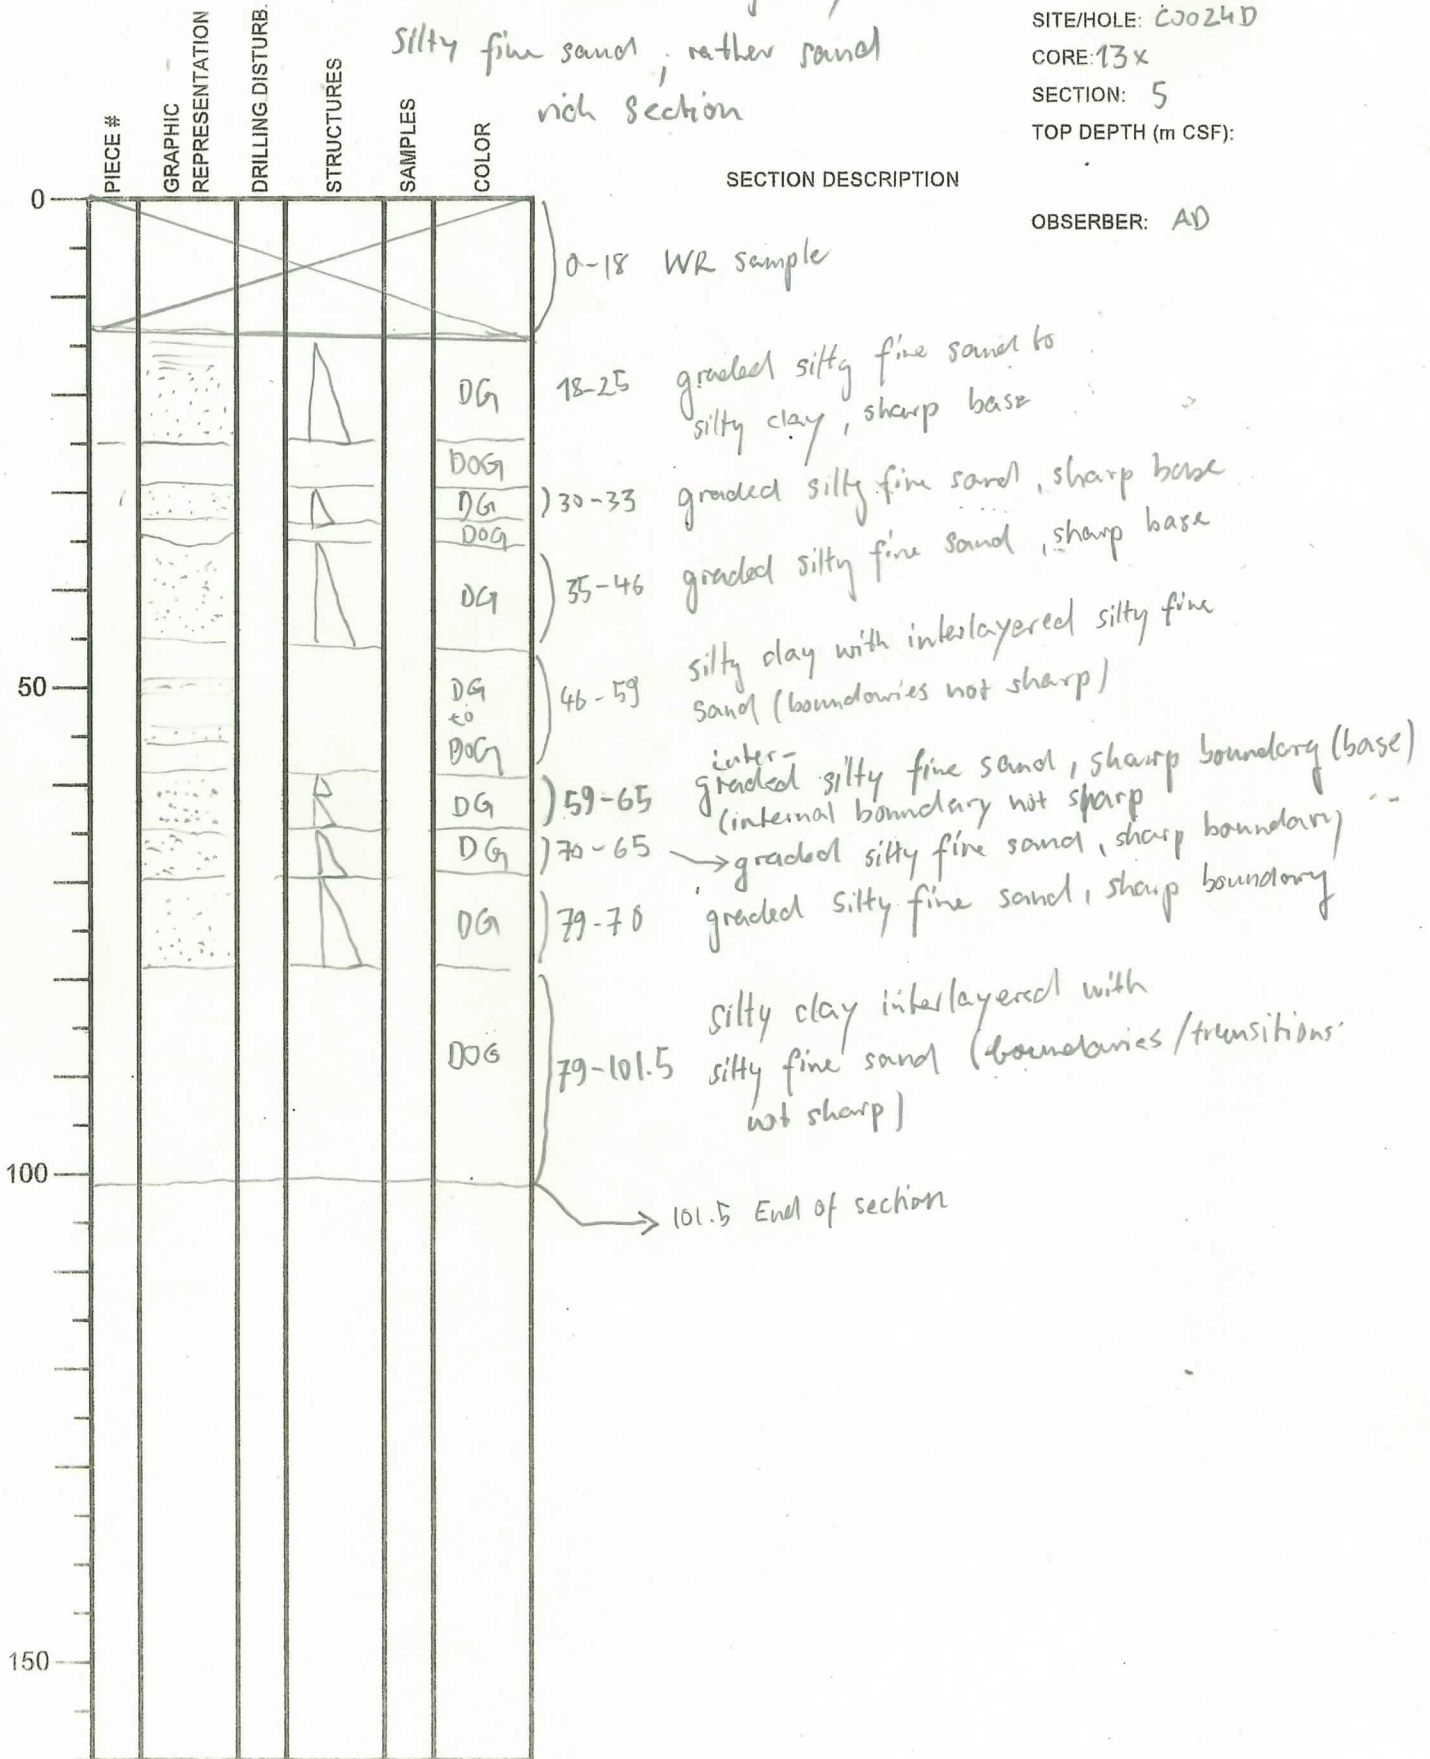 Silty fine sand ; rather sand
rich section
SITE/HOLE: C0024D
CORE: 13x
SECTION: 5
TOP DEPTH (m CSF):
SECTION DESCRIPTION
OBSERBER: AD
PIECE #
GRAPHIC
REPRESENTATION
DRILLING DISTURB.
STRUCTURES
SAMPLES
COLOR
0
0-18 WR sample
DG 18-25 graded silty fine sand to
silty clay, sharp base
DOG
DG )30-33 graded silty fine sand, sharp base
DOG
DG )35-46 graded silty fine sand, sharp base
50
DG
to
DOG
46-59 silty clay with interlayered silty fine
sand (boundaries not sharp)
inter-
DG )59-65 graded silty fine sand, sharp boundary (base)
(internal boundary not sharp
DG )70-65 → graded silty fine sand, sharp boundary
DG )79-70 graded silty fine sand, sharp boundary
DOG 79-101.5 silty clay interlayered with
silty fine sand (boundaries/transitions
not sharp)
100
→ 101.5 End of section
150